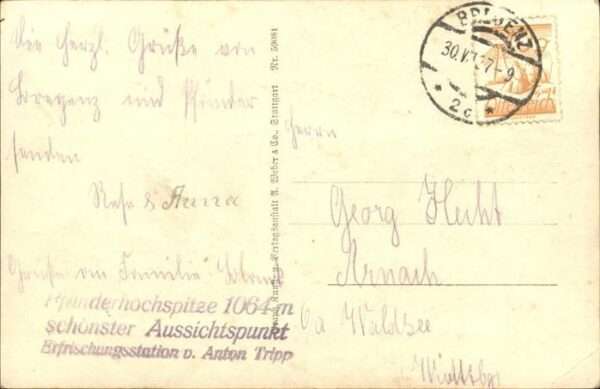 Die herzl. Grüße von
Bregenz und Pfänder
senden
Rese & Anna
Grüße an Familie
Pfänderhochspitze 1064 m
schönster Aussichtspunkt
Erfrischungsstation v. Anton Tripp
Verlagsanstalt A. Weber & Co., Stuttgart Nr. 59081
BREGENZ
30.V. 27-9
* 2c *
ÖSTERREICH
Herrn
Georg Hecht
Arnach
b/a Waldsee
Württbg.